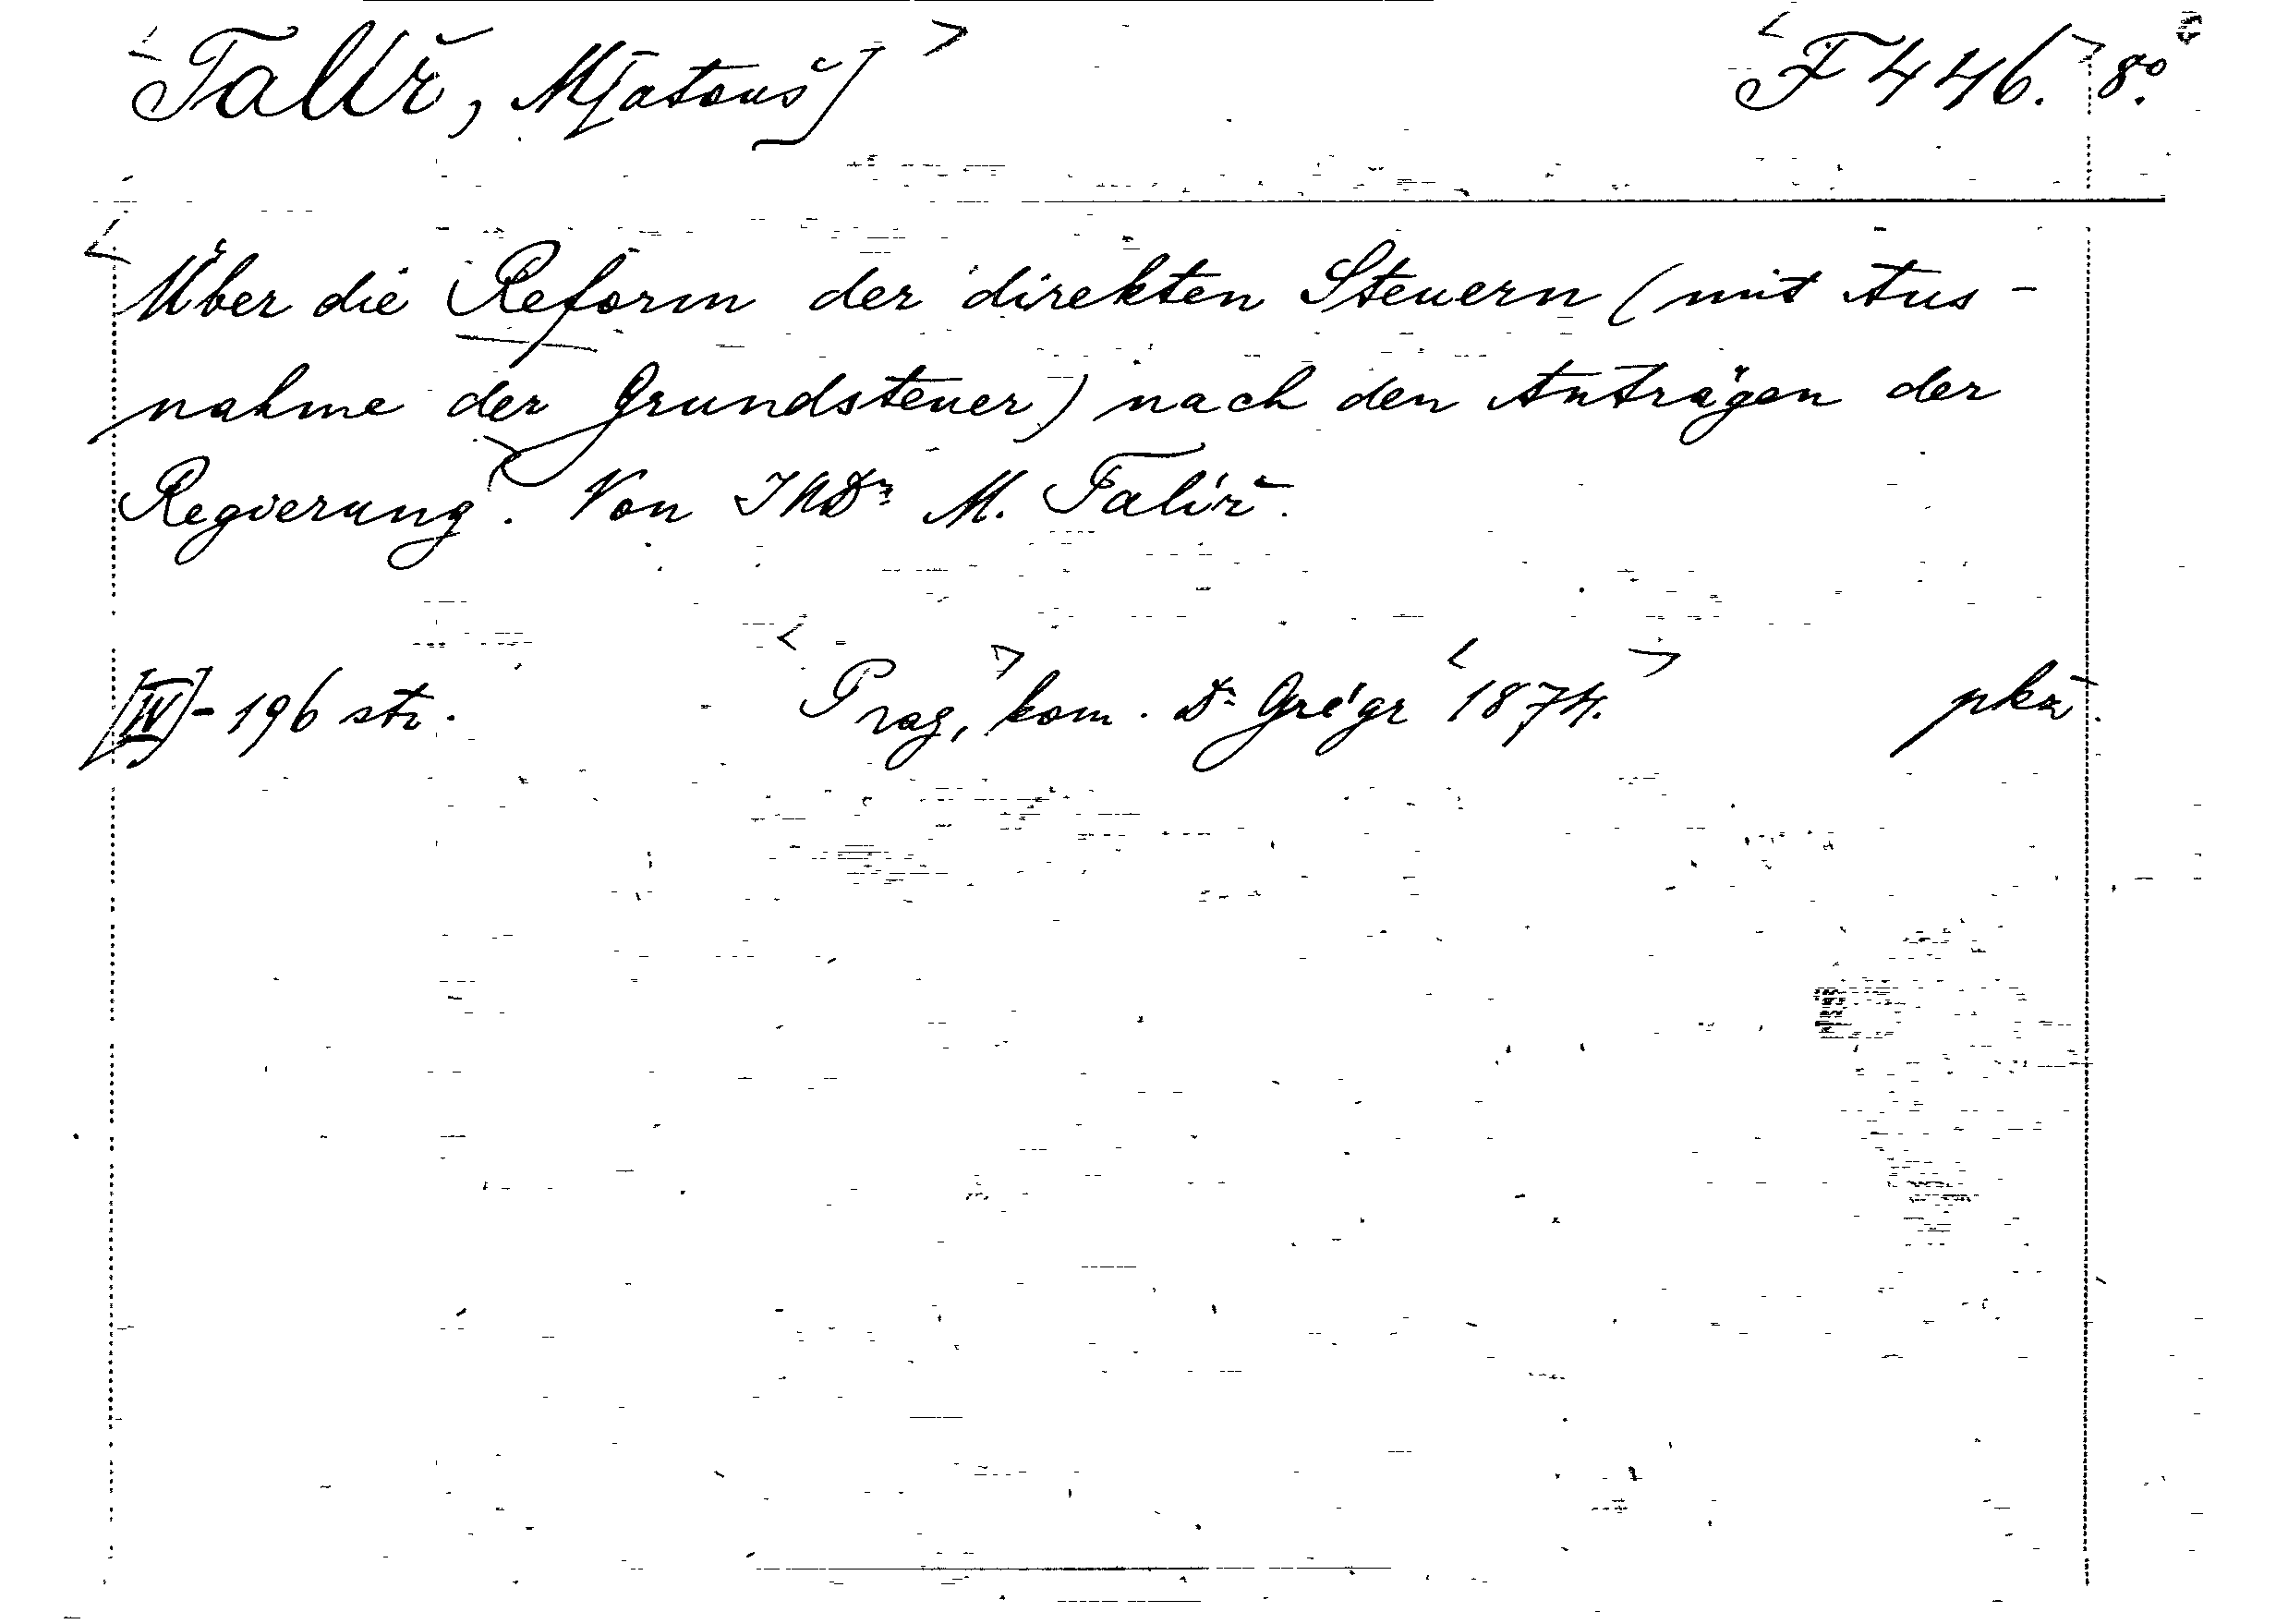 Talíř, M[atouš] F 446. 8º
Über die Reform der direkten Steuern (mit Aus-
nahme der Grundsteuer) nach den Anträgen der
Regierung. Von JUDr M. Talíř.
[IV]-196 str. Prag, kom. Dr Grégr 1874. pkž.